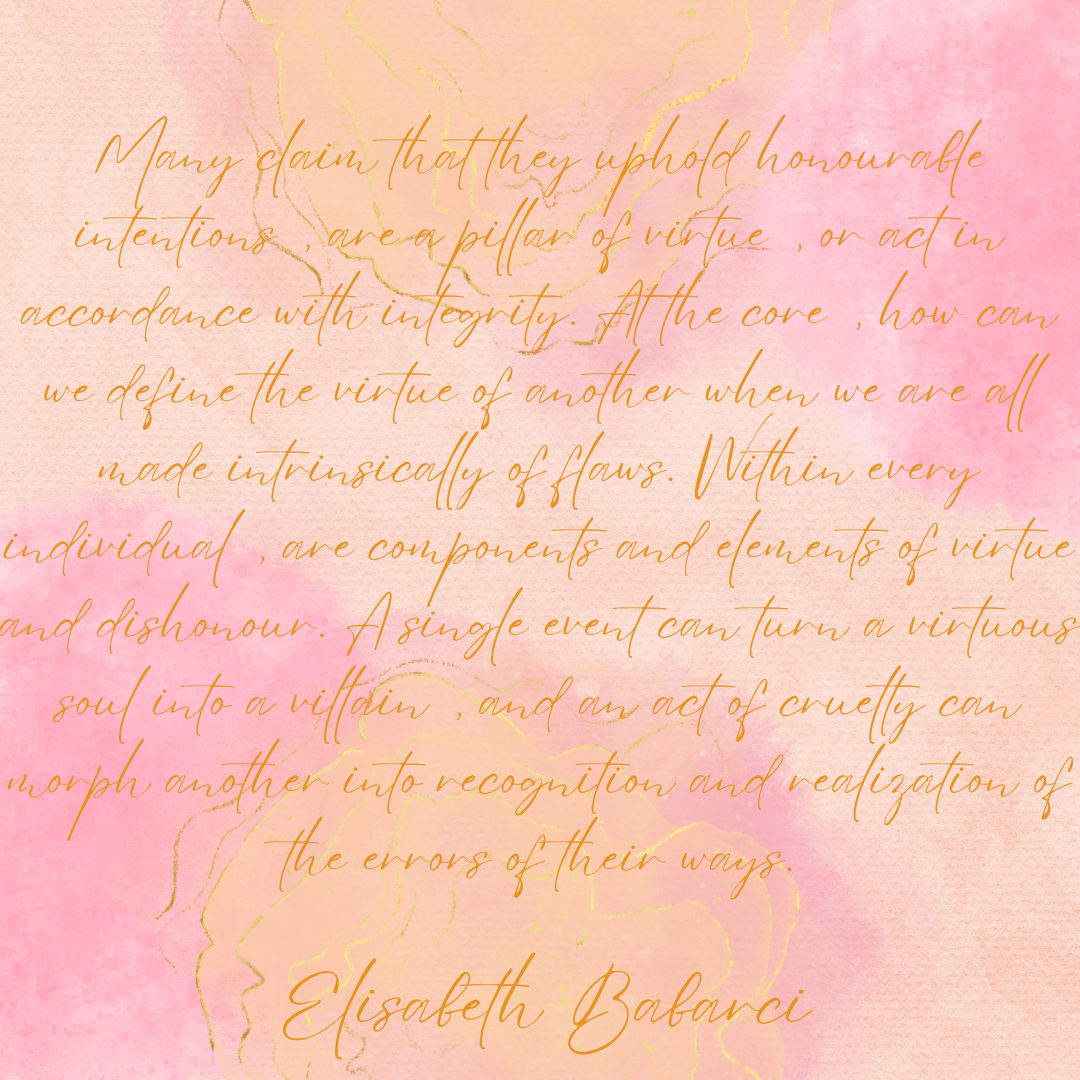 Many claim that they uphold honourable
intentions , are a pillar of virtue , or act in
accordance with integrity. At the core , how can
we define the virtue of another when we are all
made intrinsically of flaws. Within every
individual , are components and elements of virtue
and dishonour. A single event can turn a virtuous
soul into a villain , and an act of cruelty can
morph another into recognition and realization of
the errors of their ways.
Elisabeth Babarci